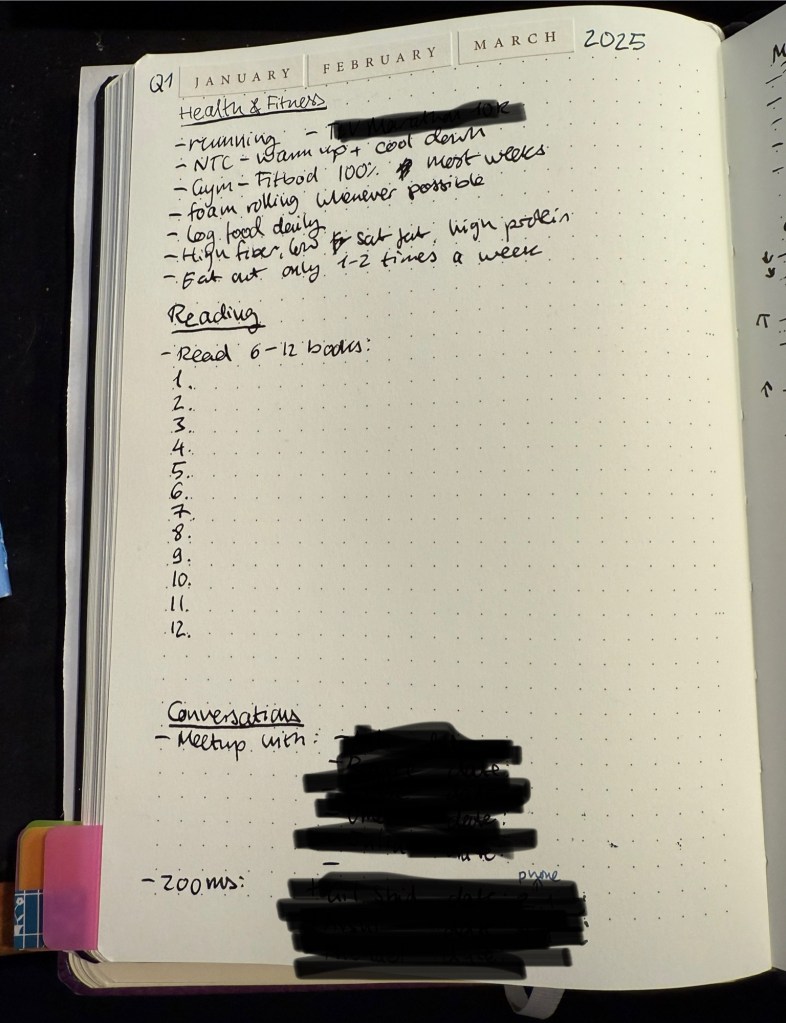 Q1 JANUARY FEBRUARY MARCH 2025
Health & Fitness
- running -
- NTC - warm up + cool down
- Gym - Fitbod 100% most weeks
- foam rolling whenever possible
- Log food daily
- High fiber, low sat fat, high protein
- Eat out only 1-2 times a week
Reading
- Read 6-12 books:
1.
2.
3.
4.
5.
6.
7.
8.
9.
10.
11.
12.
Conversations
- Meetup with:
phone
- zooms: